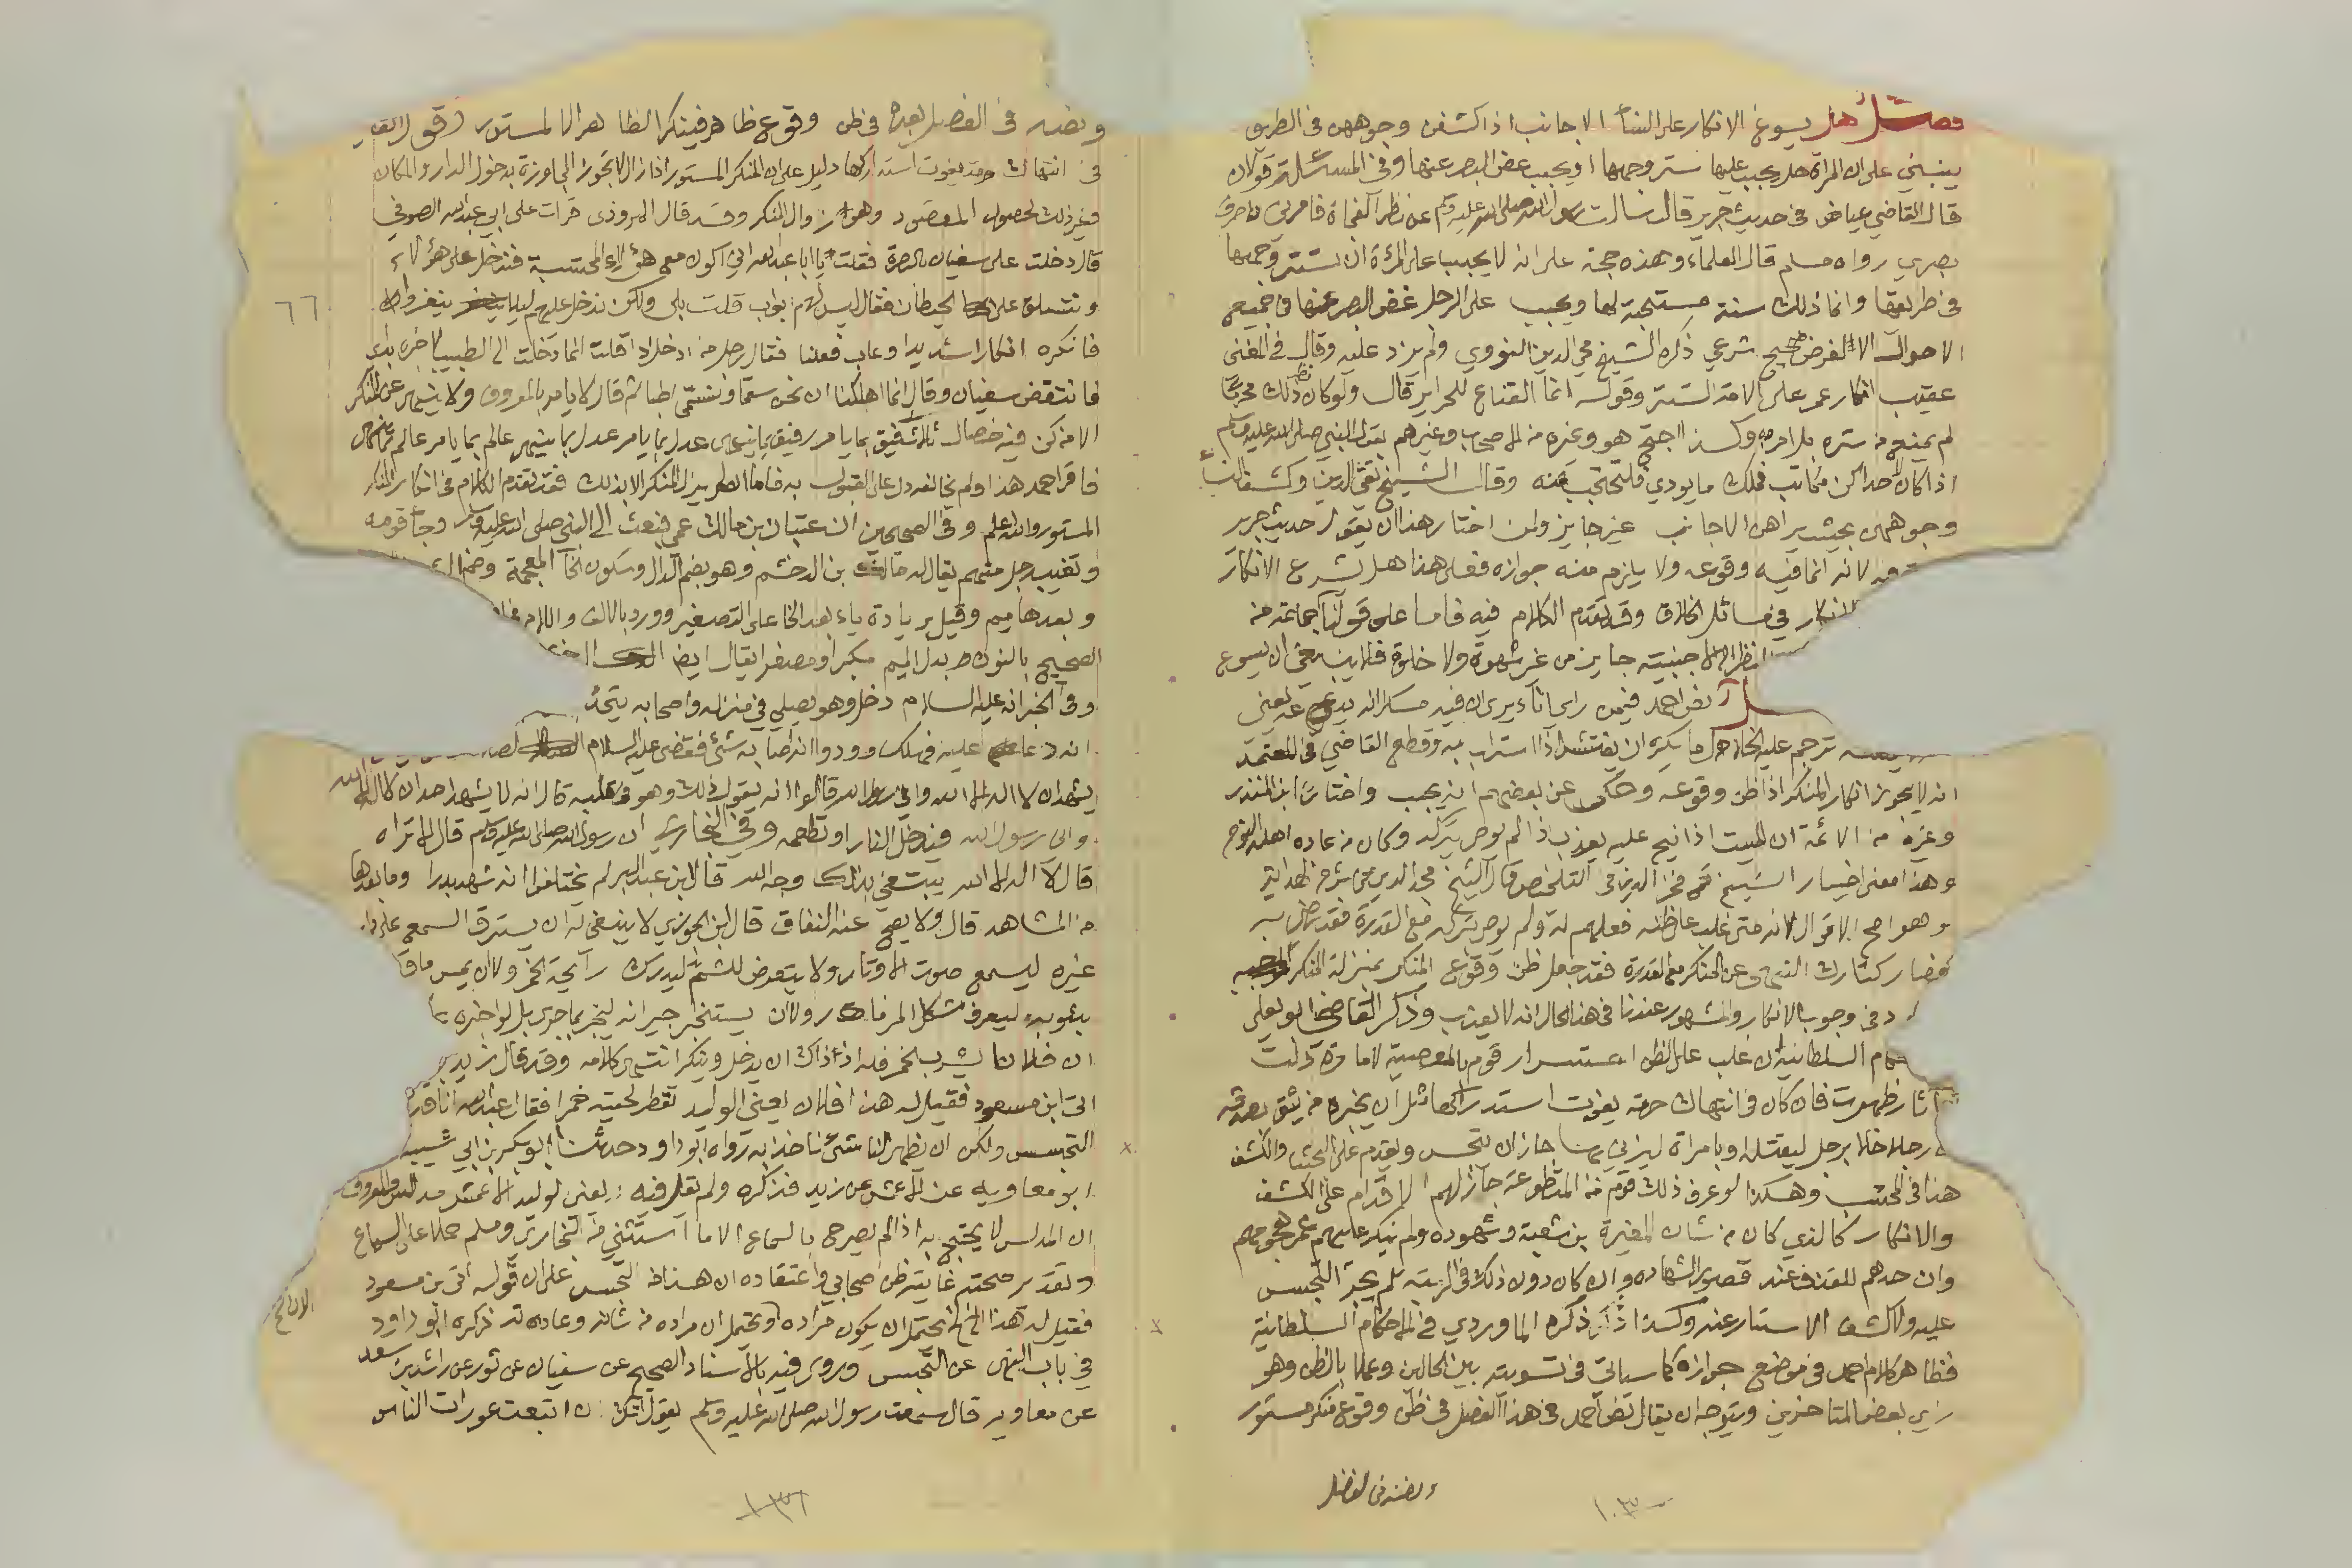 فصل هل يسوغ الانكار على النساء الاجانب اذا كشفن وجوههن في الطريق
ينبني على ان المراة هل يجب عليها ستر وجهها او يجب غض البصر عنها وفي المسئلة قولان
قال القاضي عياض في حديث جرير قال سالت رسول الله صلى الله عليه وسلم عن نظر الفجأة فامرني ان اصرف
بصري رواه مسلم قال العلماء وهذه حجة على انه لا يجب على المرأة ان تستر وجهها
في طريقها وانما ذلك سنة مستحبة لها ويجب على الرجل غض البصر عنها في جميع
الاحوال الا لغرض صحيح شرعي ذكره الشيخ محي الدين النووي ولم يزد عليه وقال في المغني
عقيب انكار عمر على الامة التستر وقوله انما القناع للحراير قال ولو كان نظر ذلك محرما
لم يمنع من ستره بل امر به وكذا احتج هو وغيره من الاصحاب وغيرهم بقول النبي صلى الله عليه وسلم
اذا كان لاحداكن مكاتب فملك ما يودي فلتحتجب منه وقال الشيخ تقي الدين وكشف النساء
وجوههن بحيث يراهن الاجانب غير جايز ولمن اختار هذا ان يقول حديث جرير
لانه انما فيه وقوعه ولا يلزم منه جوازه فعلى هذا هل يشرع الانكار
الانكار في مسائل الخلاف وقد تقدم الكلام فيه فاما على قولنا جماعة من
النظر الى الاجنبية جايز من غير شهوة ولا خلوة فلا ينبغي ان يسوغ
نص احمد فيمن راى اناء يرى ان فيه مسكرا انه يدعه يعني
ترجم عليه الخلال ما يكره ان يفتش اذا استراب به وقطع القاضي في المعتمد
انه لا يجوز انكار المنكر اذا ظن وقوعه وحكى عن بعضهم انه يجب واختار ابن المنذر
وغيره من الائمة ان الميت اذا نيح عليه يعذب اذا لم يوص بتركه وكان من عادة اهله النوح
وهذا معنى اختيار الشيخ فخر الدين في التلخيص وقال الشيخ مجد الدين في شرح الهداية
وهو اصح الاقوال لانه متى غلب على ظنه فعلهم له ولم يوص بتركه مع القدرة فقد رضي به
فصار كتارك النهي عن المنكر مع القدرة فقد جعل ظن وقوع المنكر بمنزلة المنكر
في وجوب الانكار والمشهور عندنا في هذا الحال انه لا يعذب وذكر القاضي ابو يعلى
السلطانية ان غلب على الظن استسرار قوم بالمعصية لامارة دلت
اثار ظهرت فان كان في انتهاك حرمة يفوت استدراكها مثل ان يخبره من يثق بصدقه
رجلا خلا برجل ليقتله او بامراة ليزني بها جاز ان يتجسس ويقدم على البحث والكشف
هذا في المحتسب وهكذا لو عرف ذلك قوم من المتطوعة جاز لهم الاقدام على الكشف
والانكار كالذي كان من شان المغيرة بن شعبة وشهوده ولم ينكر عليهم عمر هجومهم
وان حدهم للقذف عند قصور الشهادة وان كان دون ذلك في الريبة لم يجز التجسس
عليه ولا كشف الاستار عنه وكذا ذكره الماوردي في الاحكام السلطانية
فظاهر كلام احمد في موضع جوازه كما سياتي في تسويته بين الحالين وعملا بالظن وهو
راي بعض المتاخرين ويتوجه ان يقال نص احمد في هذا الفصل في ظن وقوع منكر مستور
ونصه في الفصل
ونصه في الفصل بعده في ظن وقوع ظاهر فينكر الظاهر لا المستور
في انتهاك حرمة يفوت استدراكها دليل على ان المنكر المستور اذا زال لا تجوز المجاوزة بدخول الدار والمكان
فغير ذلك لحصول المقصود وهو زوال المنكر وقد قال المروذي قرات على ابي عبد الله الصوفي
قال دخلت على سفيان بالبصرة فقلت يا ابا عبد الله اني اكون مع هؤلاء المحتسبة فندخل على هؤلاء
ونتسلق على الحيطان فقال اليس لهم ابواب قلت بلى ولكن ندخل عليهم ليلا يفروا
فانكره انكارا شديدا وعاب فعلنا فقال رجل من ادخل ذا قلت انما دخلت الى الطبيب لاخبره بدائي
فانتفض سفيان وقال انما اهلكنا ان نحن سقما ونسمى اطباء ثم قال لا يامر بالمعروف ولا ينهى عن المنكر
الا من كن فيه خصال ثلاث رفيق بما يامر رفيق بما ينهى عدل بما يامر عدل بما ينهى عالم بما يامر عالم بما ينهى
فاقر احمد هذا ولم يخالفه دل على القبول به فاما ان لم يزل المنكر الا بذلك فقد تقدم الكلام في انكار المنكر
المستور والله اعلم وفي الصحيحين ان عتبان بن مالك عمي فبعث الى النبي صلى الله عليه وسلم وجاء قومه
وتغيب رجل منهم يقال له مالك بن الدخشم وهو بضم الدال وسكون الخاء المعجمة وضم الشين
وبعدها ميم وقيل بزيادة ياء بعد الخا على التصغير وورد بالالف واللام
الصحيح بالنون بدل الميم مكبرا ومصغرا يقال ايضا
وفي الخبر انه عليه السلام دخل وهو يصلي في منزله واصحابه
انه دعا عليه فهلك وودوا انه اصابه شئ فقضى عليه السلام
يشهد ان لا اله الا الله واني رسول الله قالوا انه يقول ذلك وهو في قلبه قال انه لا يشهد احد ان لا اله الا الله
واني رسول الله فيدخل النار او تطعمه وفي البخاري ان رسول الله صلى الله عليه وسلم قال الا تراه
قال لا اله الا الله يبتغي بذلك وجه الله قال ابن عبد البر لم يختلفوا انه شهد بدرا وما بعدها
من المشاهد قال ولا يصح عنه النفاق قال ابن الجوزي لا ينبغي له ان يسترق السمع على دار
غيره ليسمع صوت الاوتار ولا يتعرض للشم ليدرك رايحة الخمر ولا ان يمس ما
بثوب ليعرف شكل المزمار ولا ان يستخبر جيرانه ليخبر بما جرى بل لو اخبره
ان فلانا يشرب الخمر فله اذ ذاك ان يدخل وينكر انتهى كلامه وقد قال زيد
اتى ابن مسعود فقيل له هذا فلان يعني الوليد تقطر لحيته خمرا فقال عبد الله انا قد
التجسس ولكن ان يظهر لنا شئ ناخذ به رواه ابو داود حدثنا ابو بكر بن ابي شيبة
ابو معاوية عن الاعمش عن زيد فذكره ولم يقل فيه يعني الوليد الاعمش مدلس والمعروف
ان المدلس لا يحتج به اذا لم يصرح بالسماع الا ما استثني من البخاري ومسلم حملا على السماع
وتقدير صحته غايته ظن صحابي واعتقاده ان هذا من التجسس على ان قوله اتى بن مسعود
فقيل له هذا الخ يحتمل ان يكون مراده ويحتمل ان مراده من شانه وعادته ذكره ابو داود
في باب النهي عن التجسس وروى فيه بالاسناد الصحيح عن سفيان عن ثور عن راشد بن سعد
عن معاوية قال سمعت رسول الله صلى الله عليه وسلم يقول انك ان اتبعت عورات الناس
٦٦